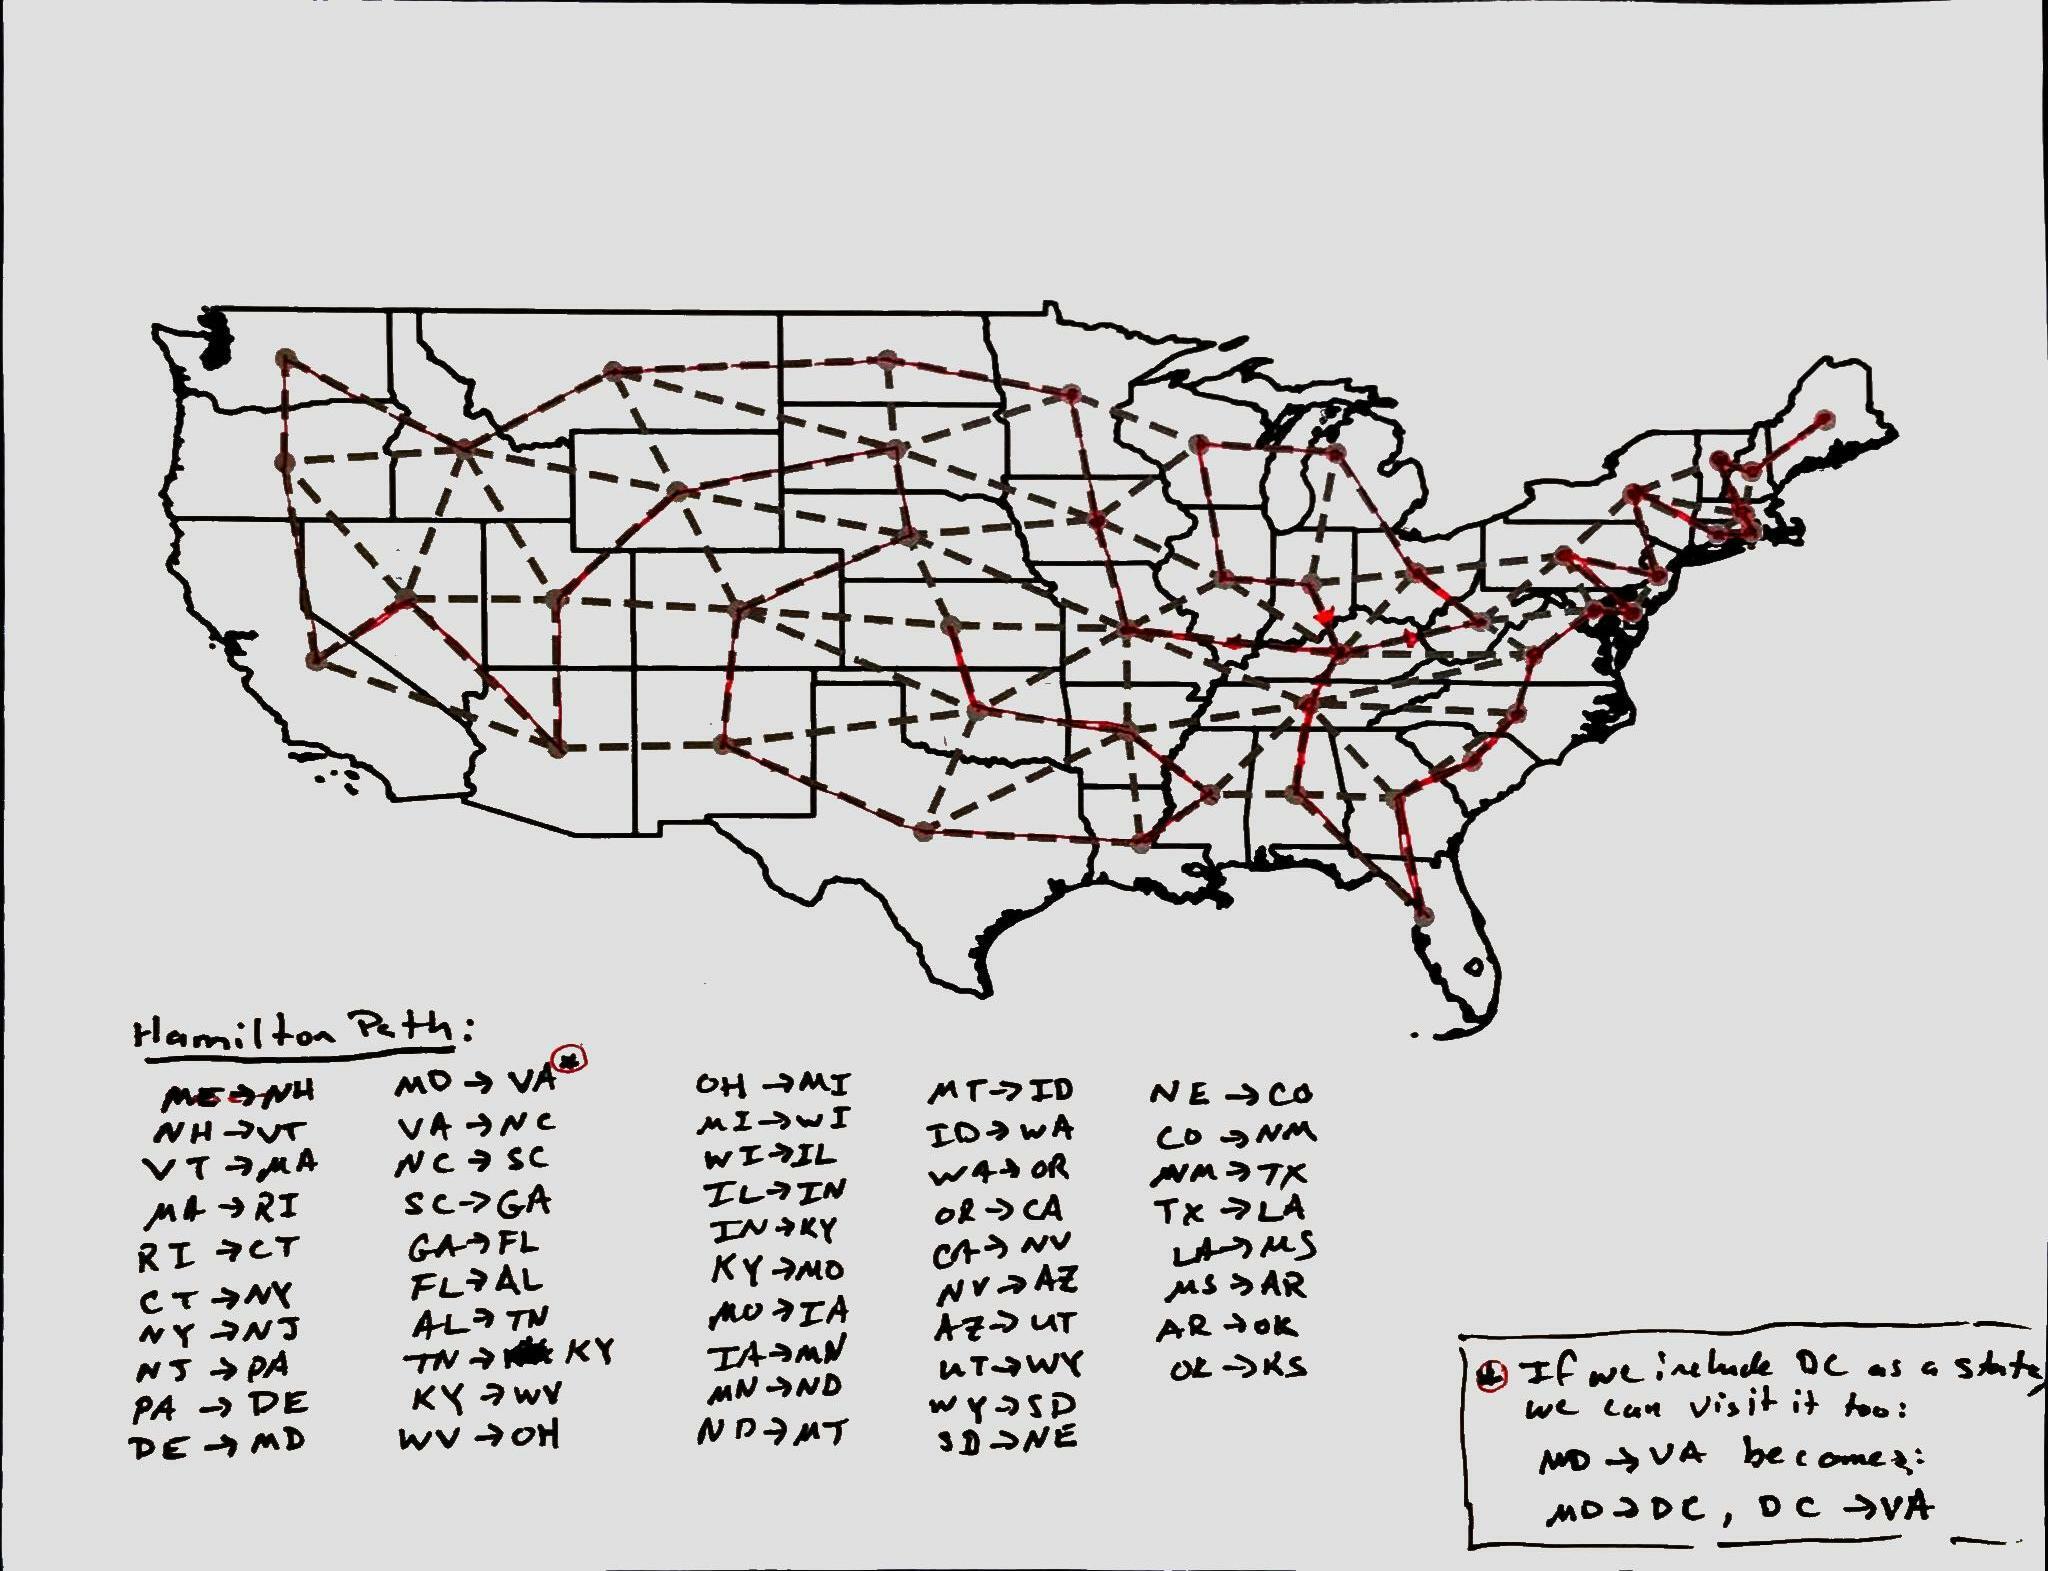 Hamilton Path:
ME → NH
NH → VT
VT → MA
MA → RI
RI → CT
CT → NY
NY → NJ
NJ → PA
PA → DE
DE → MD
MD → VA*
VA → NC
NC → SC
SC → GA
GA → FL
FL → AL
AL → TN
TN → KY
KY → WV
WV → OH
OH → MI
MI → WI
WI → IL
IL → IN
IN → KY
KY → MO
MO → IA
IA → MN
MN → ND
ND → MT
MT → ID
ID → WA
WA → OR
OR → CA
CA → NV
NV → AZ
AZ → UT
UT → WY
WY → SD
SD → NE
NE → CO
CO → NM
NM → TX
TX → LA
LA → MS
MS → AR
AR → OK
OK → KS
* If we include DC as a state,
we can visit it too:
MD → VA becomes:
MD → DC, DC → VA